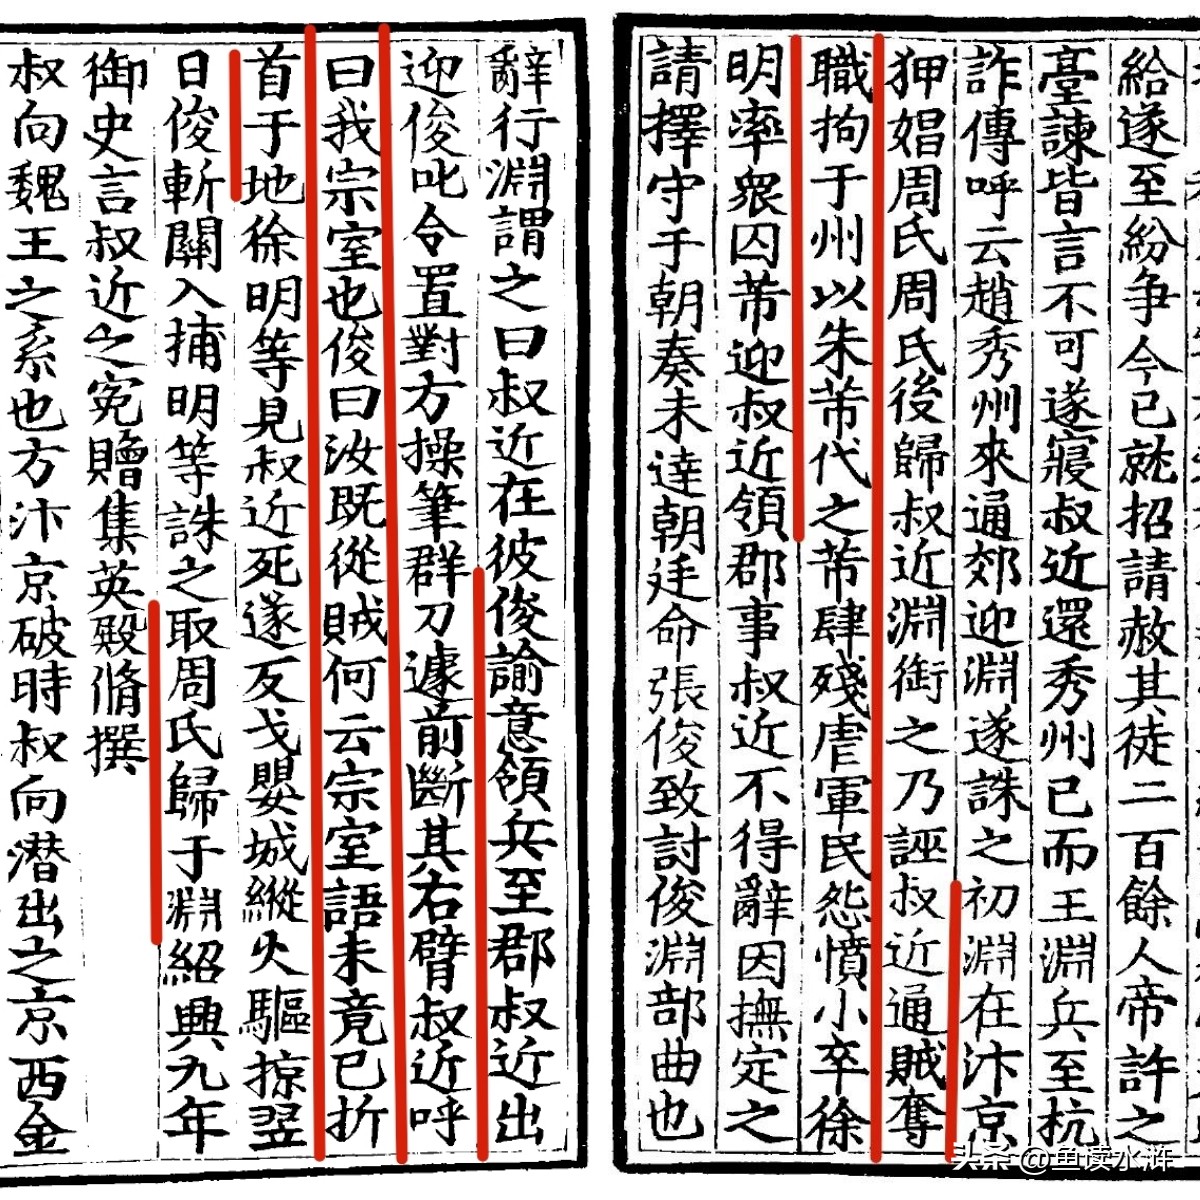 給遂至紛争今已就招請赦其徒二百餘人帝許之
臺諫皆言不可遂寢叔近還秀州已而王淵兵至杭
詐傳呼云趙秀州來通郊迎淵遂誅之初淵在汴京
狎娼周氏周氏後歸叔近淵銜之乃誣叔近通賊奪
職拘于州以朱芾代之芾肆殘虐軍民怨憤小卒徐
明率衆囚芾迎叔近領郡事叔近不得辭因撫定之
請擇守于朝奏未達朝廷命張俊致討俊淵部曲也
辭行淵謂之曰叔近在彼俊諭意領兵至郡叔近出
迎俊叱令置對方操筆群刀遽前斷其右臂叔近呼
曰我宗室也俊曰汝既從賊何云宗室語未竟已折
首于地徐明等見叔近死遂反戈嬰城縱火驅掠翌
日俊斬關入捕明等誅之取周氏歸于淵紹興九年
御史言叔近之冤贈集英殿脩撰
叔向魏王之系也方汴京破時叔向潜出之京西金
头条 @鱼读水浒